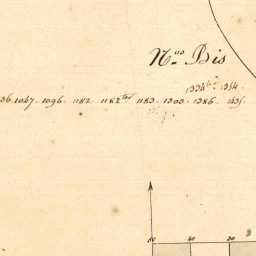 N.o Bis
1334bis. 1354.
36. 1047. 1096. 1182. 1182bis 1183. 1300. 1386. 1435.
50 40 30